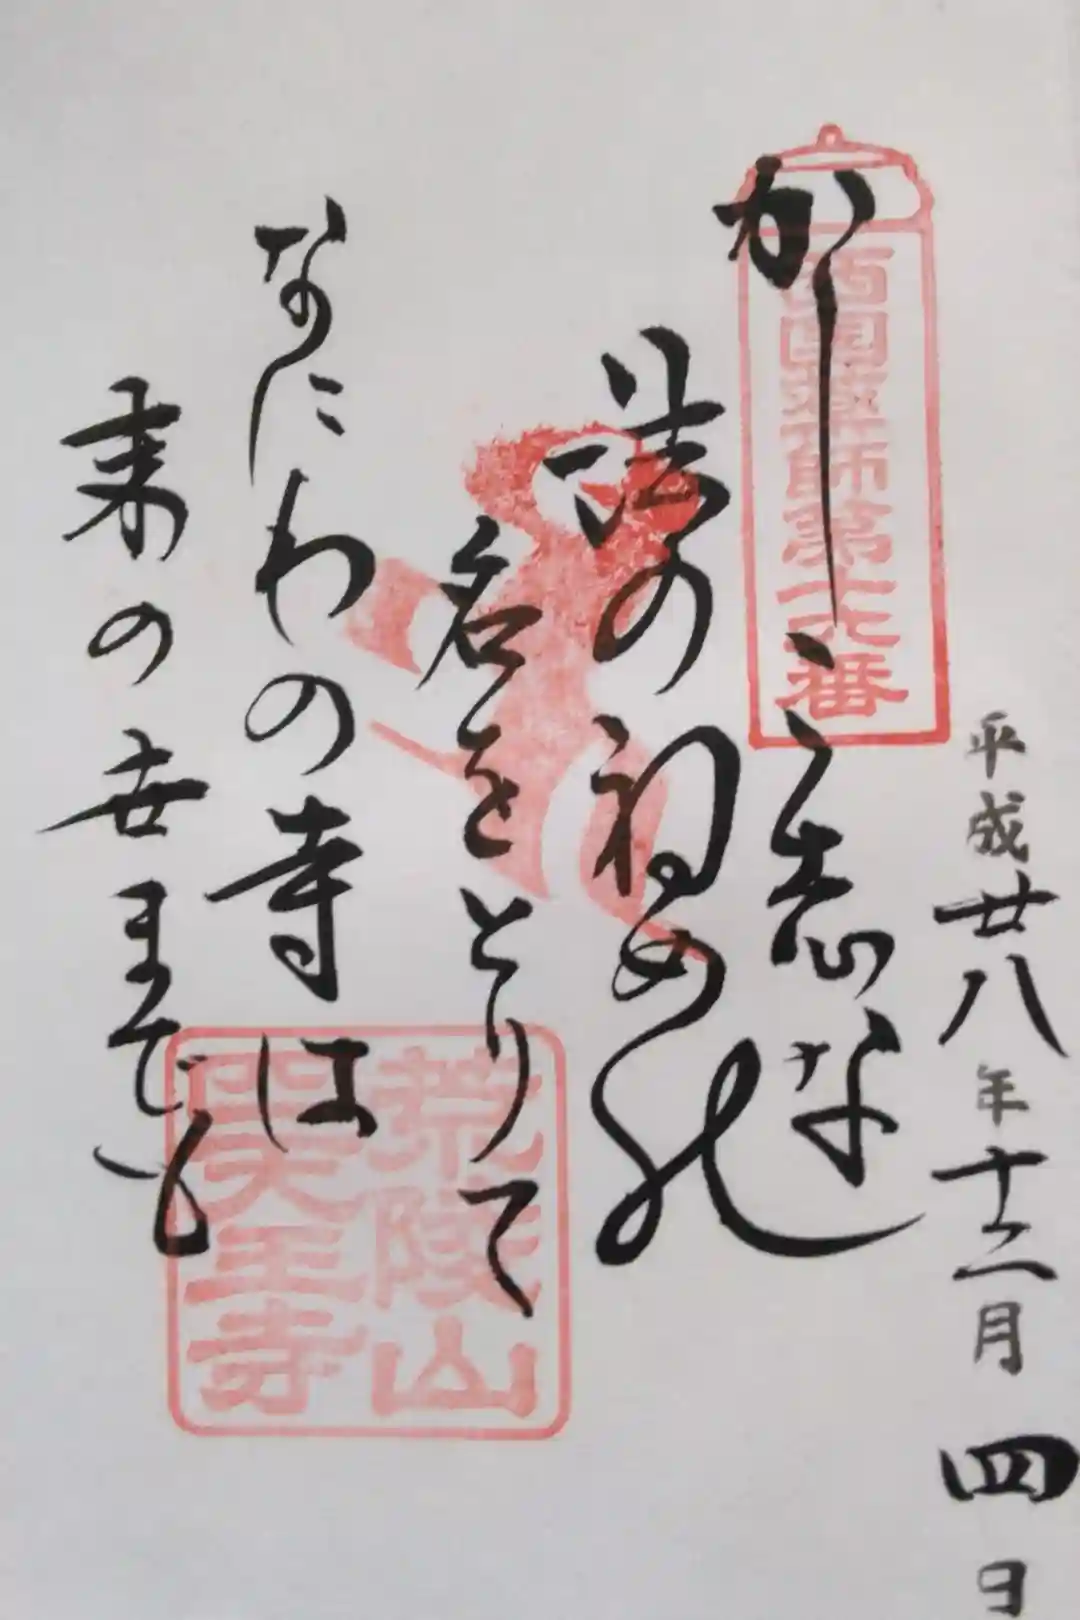 平成廿八年十二月四日
西国薬師第十六番
かしこ志な
法の初めの
名をとりて
なにわの寺は
の世までも
荒陵山
四天王寺